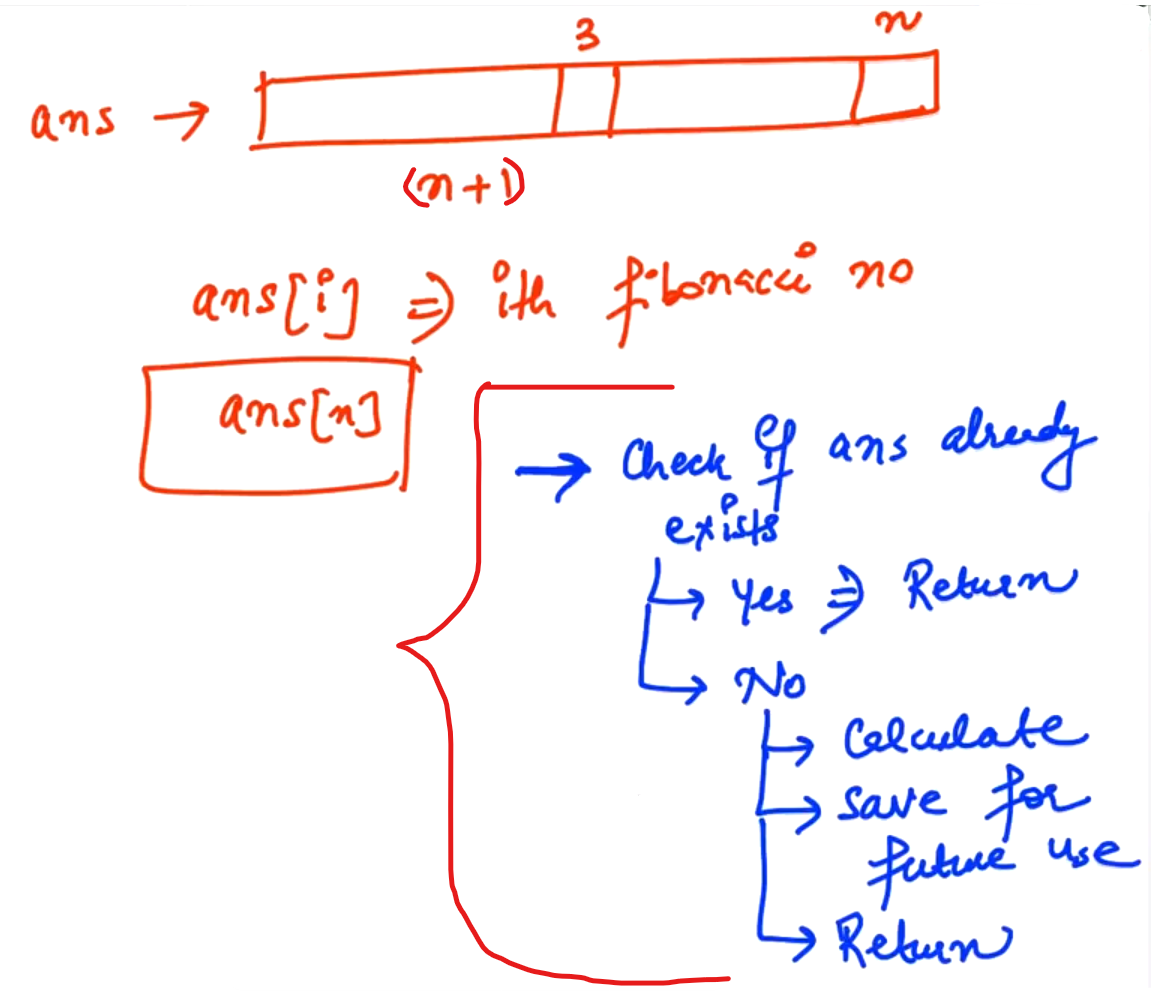 3 n
ans →
(n+1)
ans[i] ⇒ ith fibonacci no
ans[n]
→ Check if ans already
exists
→ Yes ⇒ Return
→ No
→ Calculate
→ save for
future use
→ Return